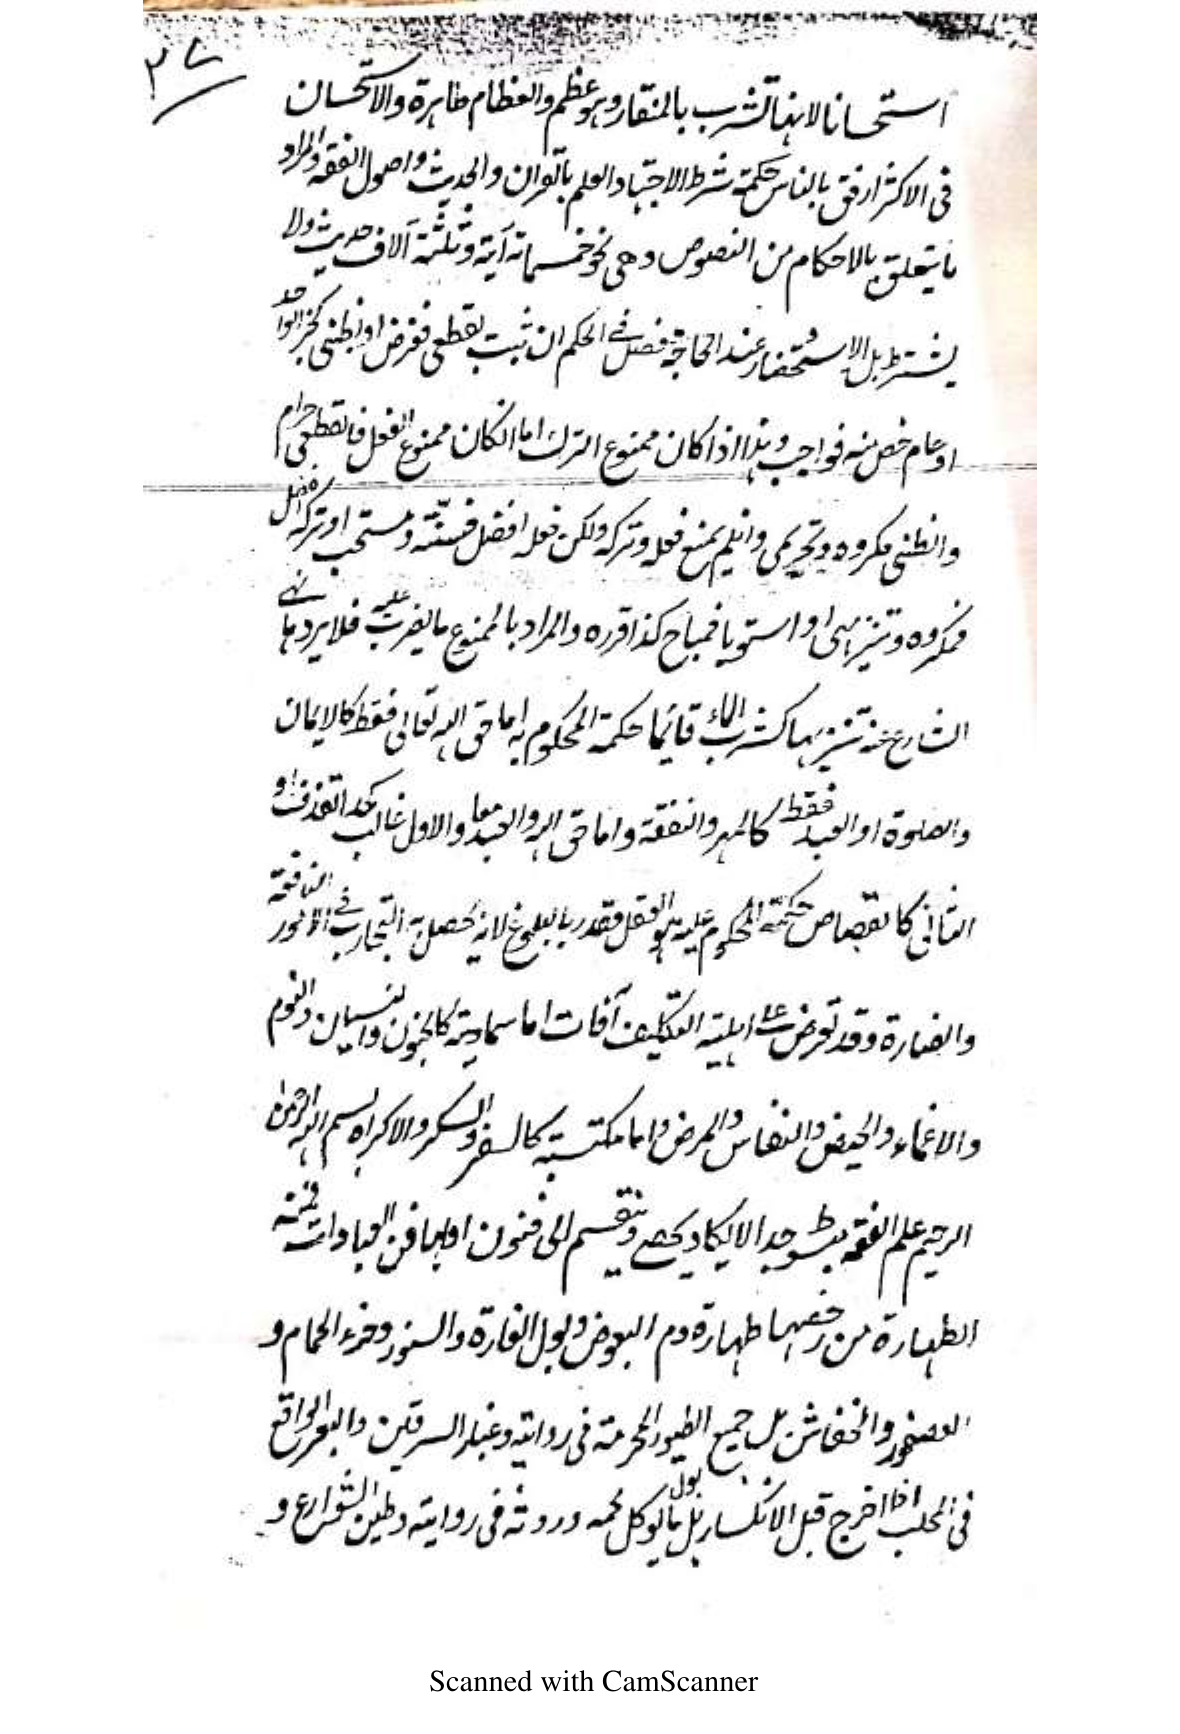 ٣٧
استحسانا لانها تشرب بالمنقار وهو عظم والعظام طاهرة والاستحسان
فى الاكثر ارفق بالناس حكمة شرط الاجتهاد العلم بالقران والحديث واصول الفقه والمراد
ما يتعلق بالاحكام من النصوص وهى نحو خمسمائة آية وثلثمة آلاف حديث ولا
يشترط بل الاستحضار عند الحاجة فصل فى الحكم ان ثبت بقطعى ففرض او بظنى كخبر الواحد
او عام خص منه فواجب وهذا اذا كان ممنوع الترك اما انكان ممنوع الفعل فالقطعى حرام
والظنى مكروه وتحريمى وانلم يمنع فعله وتركه ولكن فعله افضل فسنة ومستحب او تركه افضل
فمكروه وتنزيهى او استويا فمباح كذا قرره والمراد بالممنوع ما يضرب عليه فلا يرد ما نهى
الشارع عنه تنزيها كشرب الماء قائما حكمة المحكوم به اما حق الله تعالى فقط كالايمان
والصلوة او العبد فقط كالمهر والنفقة واما حق الله والعبد معا والاول غالب كحد القذف او
الثانى كالقصاص حكمة المحكوم عليه هو العقل فقدر بالبلوغ لانه يحصل به التجارب فى الامور النافعة
والضارة وقد تعرض على اهلية التكليف آفات اما سماوية كالجنون والنسيان والنوم
والاغماء والحيض والنفاس والمرض واما مكتسبة كالسفر والسكر والاكراه بسم الله الرحمن
الرحيم علم الفقه جدا لا يكاد يحصى وينقسم الى فنون اولها فن العبادات فمنه
الطهارة من رخصها طهارة دم البعوض وبول الفارة والسنور وخرء الحمام و
العصفور والخفاش بل جميع الطيور المحرمة فى رواية وغبار السرقين والبعر الواقع
فى المحلب اذا اخرج قبل الانكسار بل بول ما يوكل لحمه وروثه فى رواية وطين الشوارع و
Scanned with CamScanner